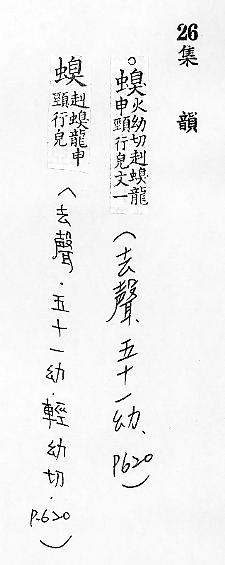 26 集韻
。螑火幼切赳螑龍申頸行皃文一(去聲、五十一幼、P620)
螑赳螑龍申頸行皃(去聲.五十一幼.輕幼切.P.620)